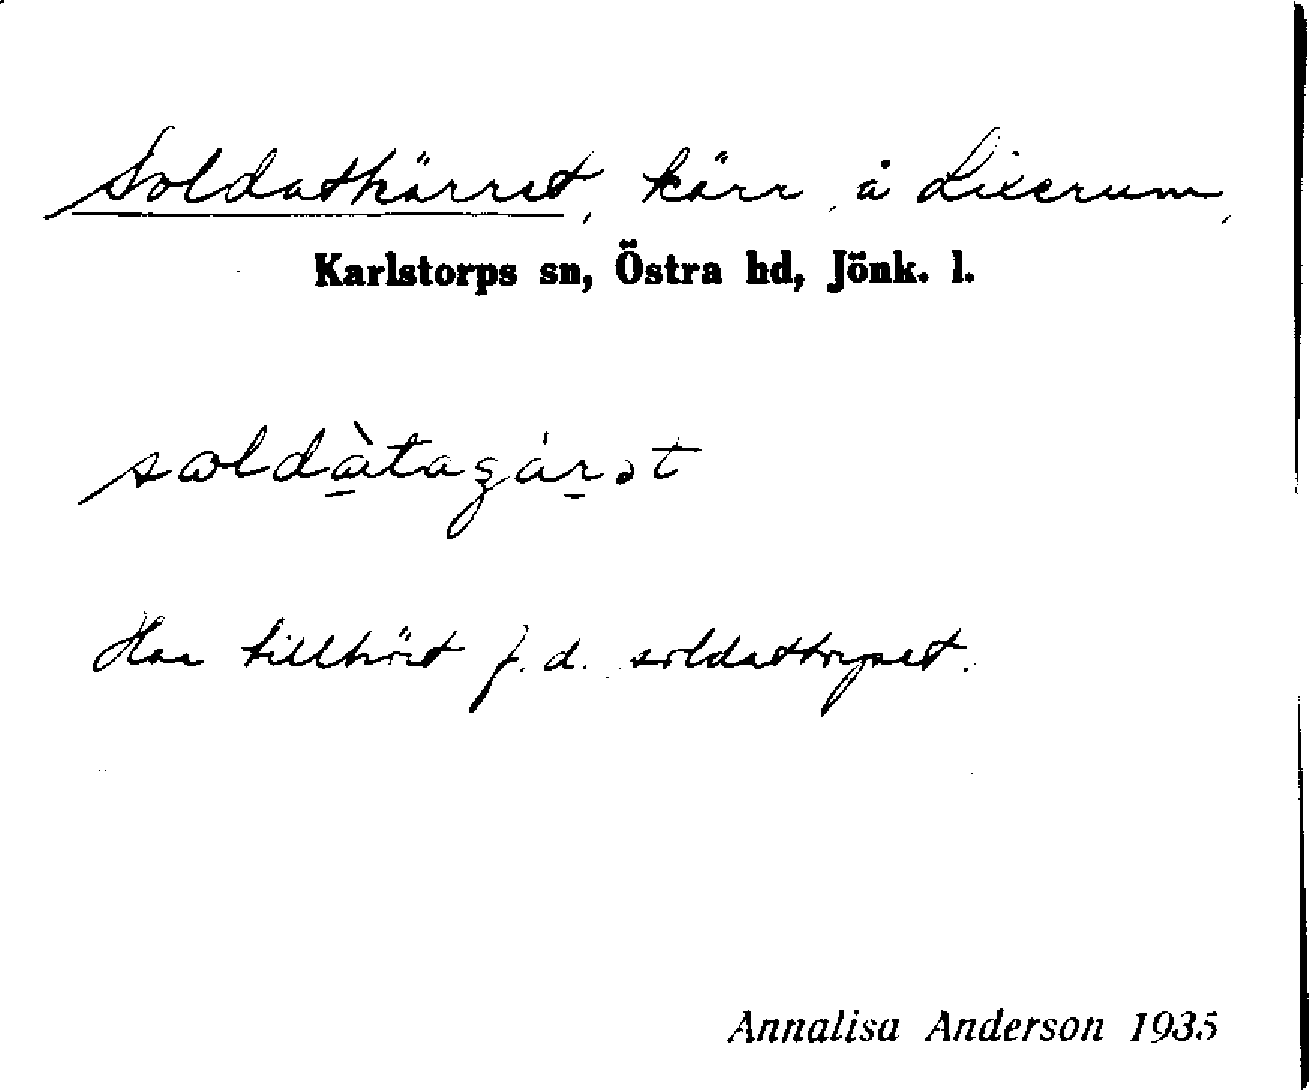 Soldatkärret, kärr å Lixerum,
Karlstorps sn, Östra hd, Jönk. l.
Har tillhört f.d. soldattorpet.
Annalisa Anderson 1935